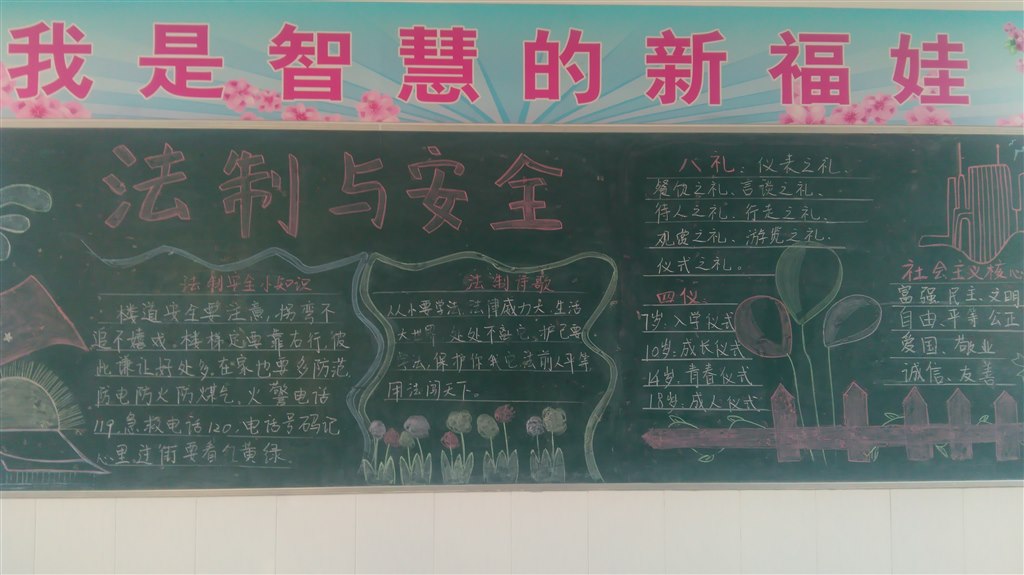 我是智慧的新福娃
法制与安全
法制安全小知识
楼道安全要注意,拐弯不
追不嬉戏。楼梯走要靠右行,彼
此谦让好处多,在家也要多防范,
防电防火防煤气。火警电话
119,急救电话120,电话号码记
心里过街要看红黄绿
法制诗歌
从小要学法,法律威力大,生活
大世界 处处不离它,护己要
保护你我它,法前人平等,
用法闯天下。
八礼、仪表之礼、
餐饮之礼、言谈之礼、
待人之礼、行走之礼、
观赏之礼、游览之礼、
仪式之礼。
四仪
7岁:入学仪式
10岁:成长仪式
14岁,青春仪式
18岁,成人仪式
社会主义核心
富强 民主 文明
自由、平等 公正
爱国、敬业
诚信、友善